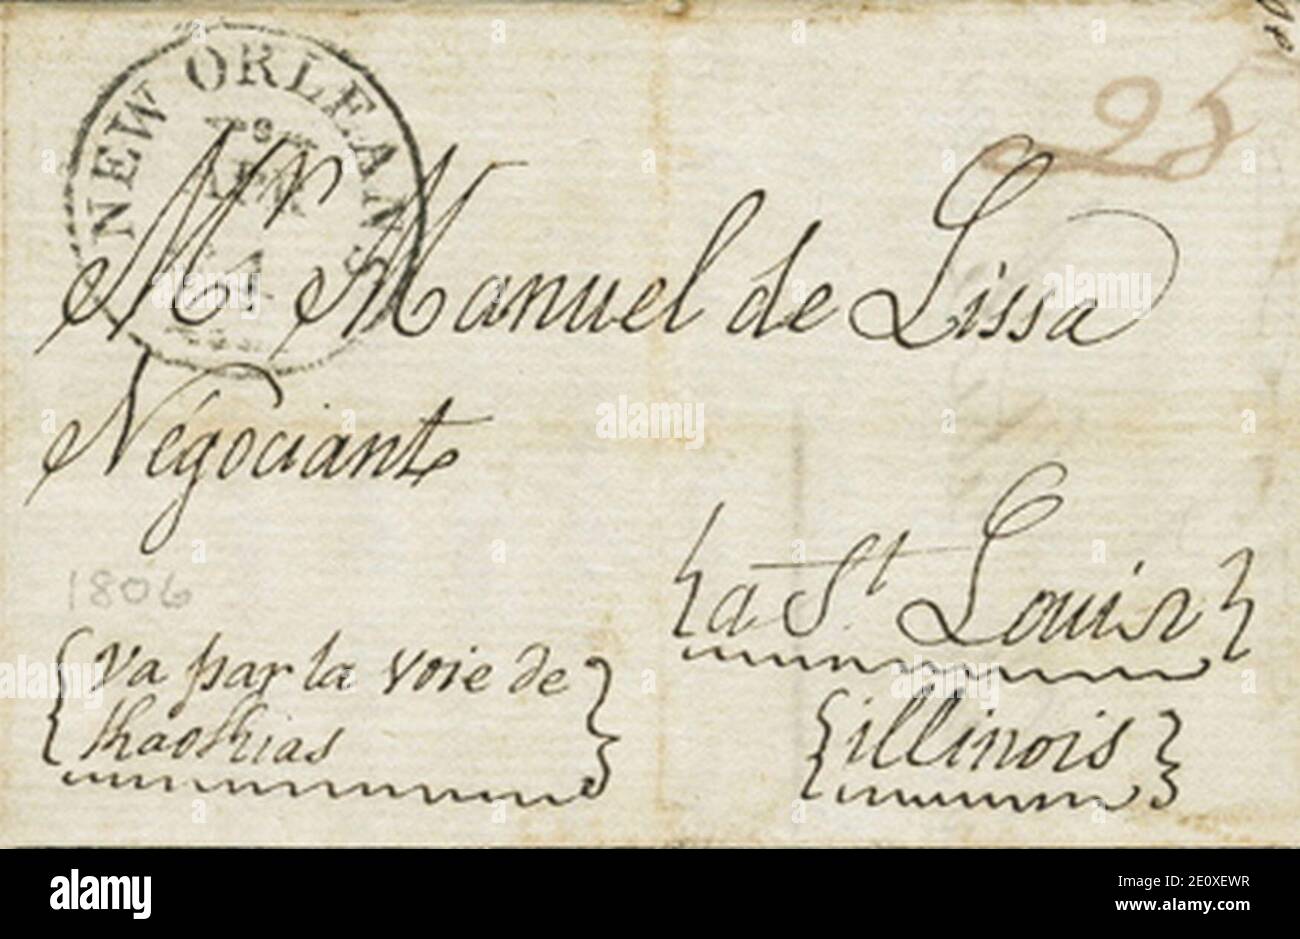 NEW ORLEANS
25
Mr Manuel de Lissa
Négociant
{a St. Louis}
{illinois}
1806
{va par la voie de
Kaoskias}
alamy
www.alamy.com
Image ID: 2E0XEWR